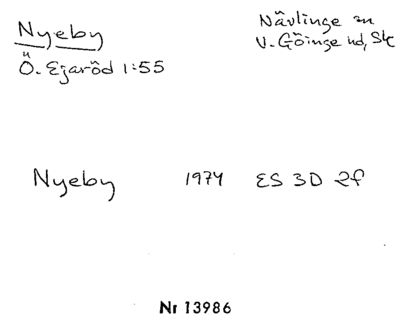 Nyeby
Ö. Ejaröd 1:55
Nävlinge sn
V. Göinge hd, Sk
Nyeby 1974 ES 3D 2f
Nr 13986